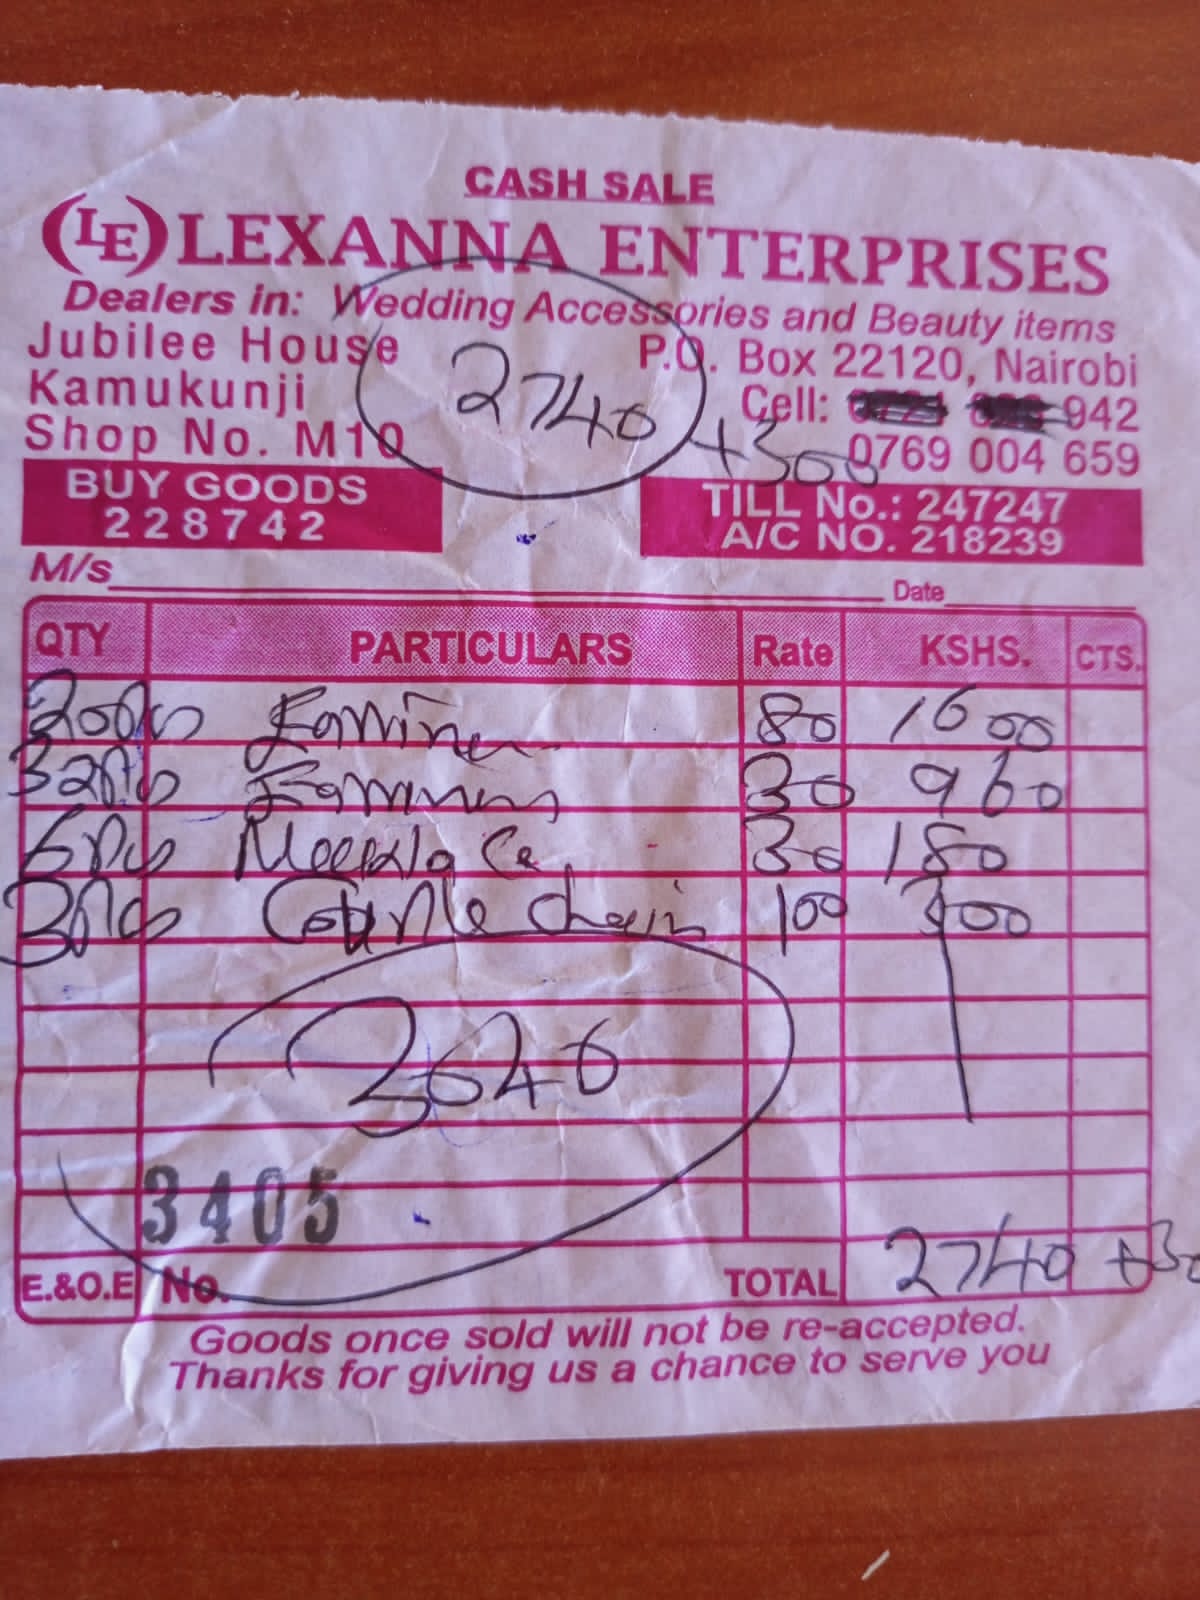 CASH SALE
(LE) LEXANNA ENTERPRISES
Dealers in: Wedding Accessories and Beauty items
Jubilee House
Kamukunji
Shop No. M10
2740
+300
P.O. Box 22120, Nairobi
Cell: 942
0769 004 659
BUY GOODS
228742
TILL No.: 247247
A/C NO. 218239
M/s Date
QTY PARTICULARS Rate KSHS. CTS.
20pcs 80 1600
32pcs 30 960
6pcs 30 180
3pcs chain 100 300
3040
3405
E.&O.E No. TOTAL 2740 +30
Goods once sold will not be re-accepted.
Thanks for giving us a chance to serve you